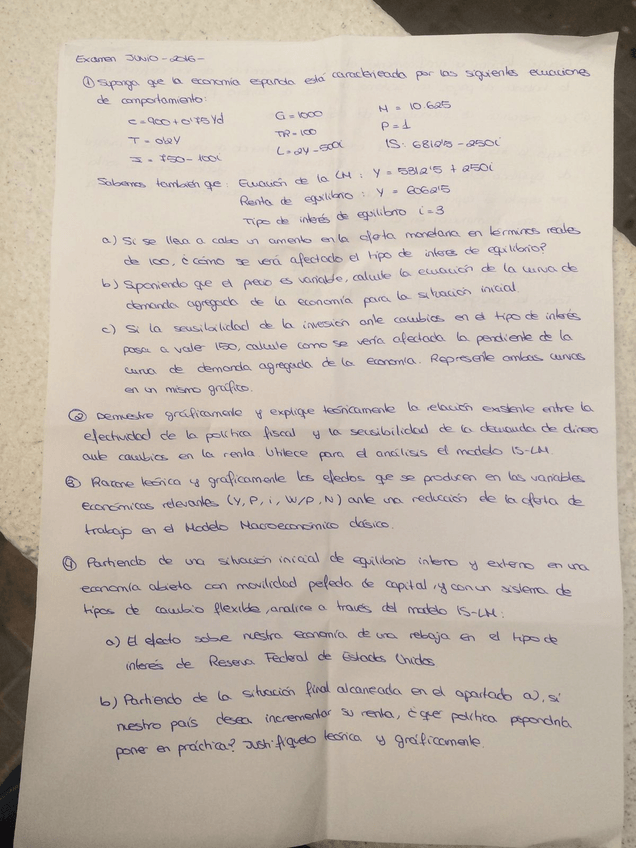 Examen JUNIO-2016-
① Suponga que la economía española está caracterizada por las siguientes ecuaciones
de comportamiento:
C = 900 + 0'75Yd G = 1000 M = 10.625
T = 0'2Y TR = 100 P = 1
I = 750 - 100i L = 2Y - 500i IS: 6812'5 - 250i
Sabemos también que: Ecuación de la LM: Y = 5312'5 + 250i
Renta de equilibrio: Y = 6062'5
Tipo de interés de equilibrio i = 3
a) Si se lleva a cabo un aumento en la oferta monetaria en términos reales
de 100, ¿cómo se verá afectado el tipo de interes de equilibrio?
b) Suponiendo que el precio es variable, calcule la ecuación de la curva de
demanda agregada de la economía para la situación inicial.
c) Si la sensibilidad de la inversión ante cambios en el tipo de interés
pasa a valer 150, calcule como se vería afectada la pendiente de la
curva de demanda agregada de la economía. Represente ambas curvas
en un mismo gráfico.
② Demuestre gráficamente y explique teóricamente la relación existente entre la
efectividad de la política fiscal y la sensibilidad de la demanda de dinero
ante cambios en la renta. Utilece para el análisis el modelo IS-LM.
③ Razone teórica y graficamente los efectos que se producen en las variables
económicas relevantes (Y, P, i, W/P, N) ante una reducción de la oferta de
trabajo en el Modelo Macroeconómico clásico.
④ Partiendo de una situación inicial de equilibrio interno y externo en una
economía abierta con movilidad perfecta de capital, y con un sistema de
tipos de cambio flexible, analice a través del modelo IS-LM:
a) El efecto sobre nuestra economía de una rebaja en el tipo de
interés de Reserva Federal de Estados Unidos
b) Partiendo de la situación final alcanzada en el apartado a), si
nuestro país desea incrementar su renta, ¿que política
poner en práctica? Justifíquelo teórica y gráficamente.